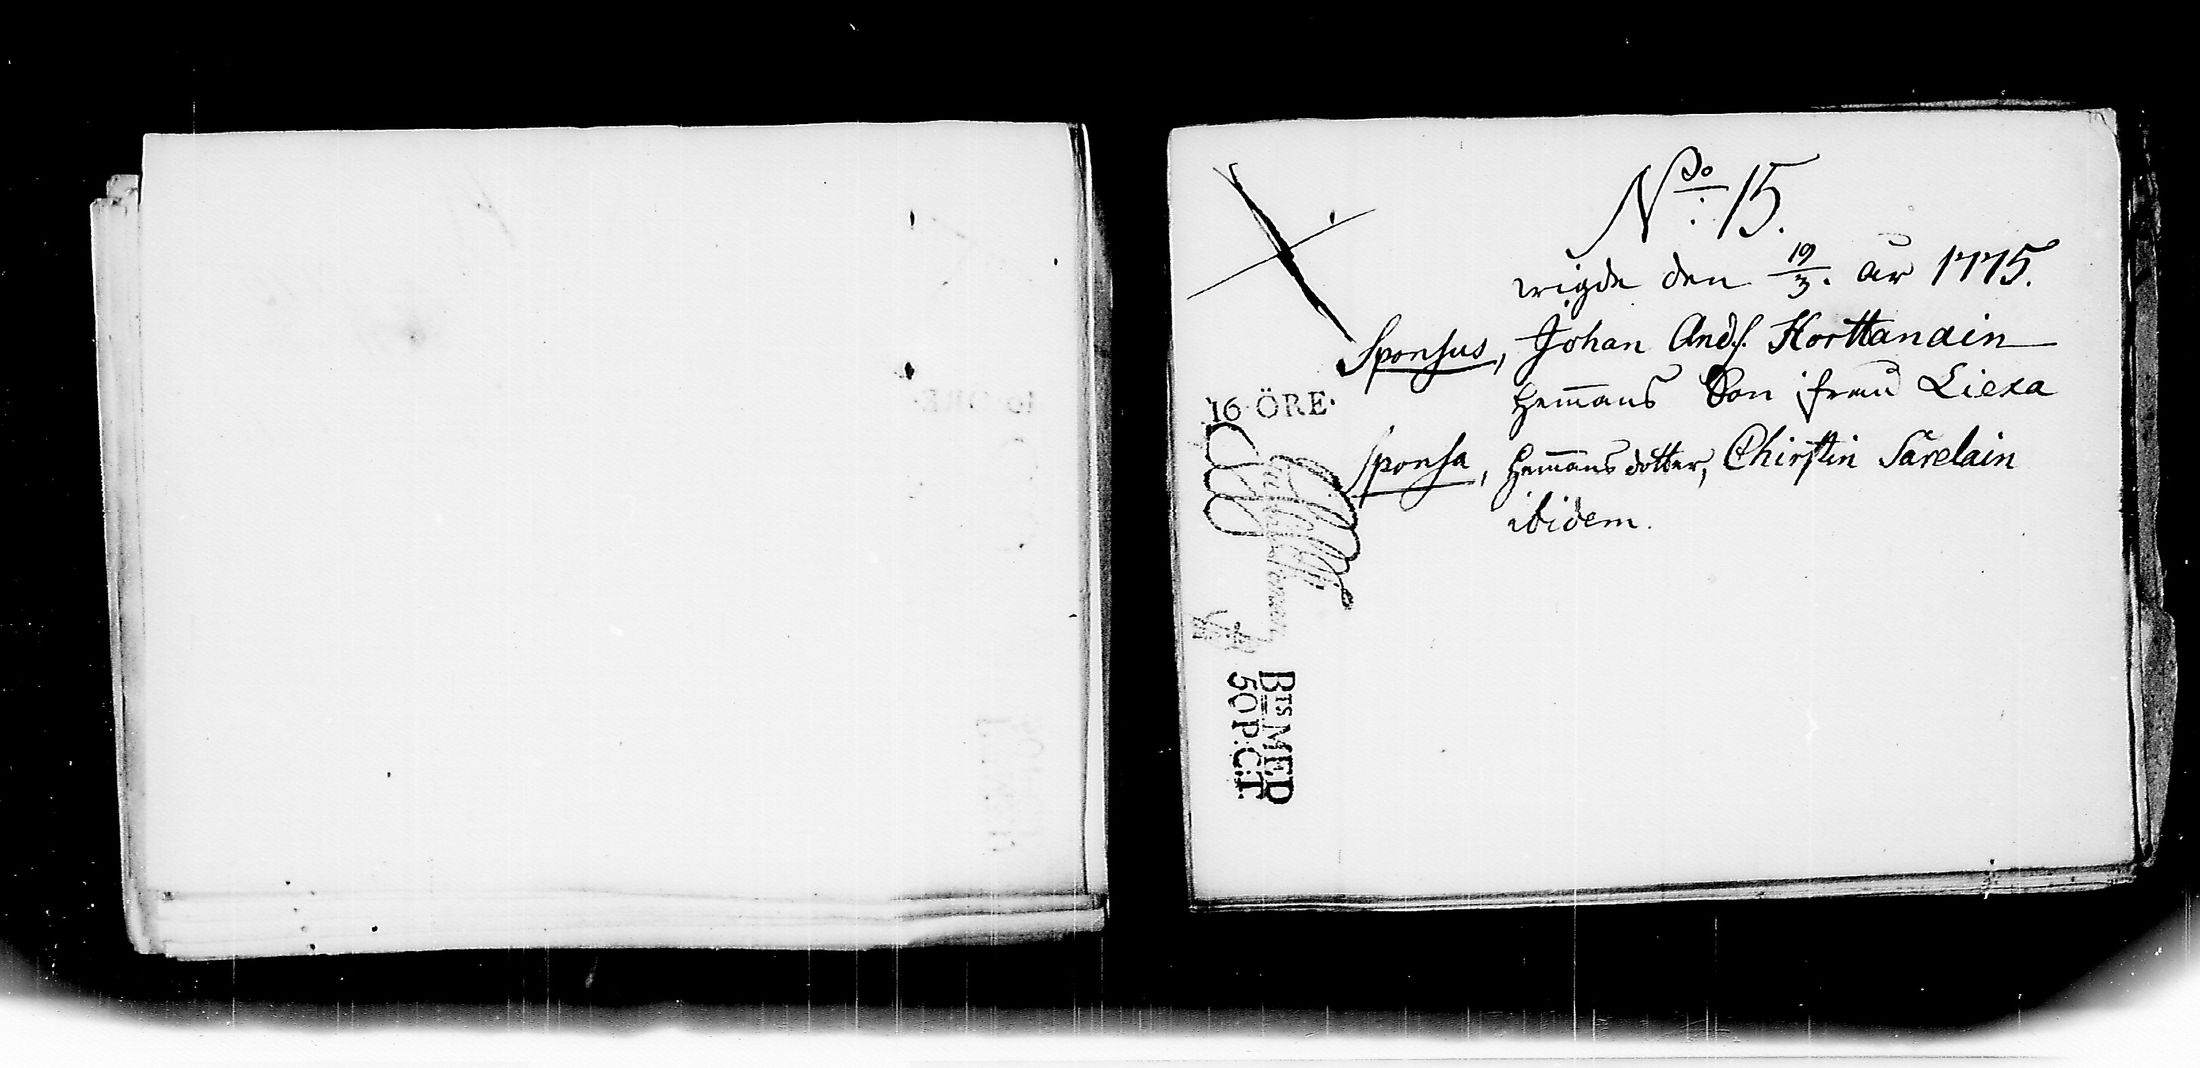 N:o 15.
wigde den 19/3. år 1775.
Sponsus, Johan Ands. Korttanain
Hem̅ans Son ifrån Liexa
16 ÖRE.
Sponsa, Hem̅ans dotter, Chirstin Sarelain
ibidem.
BTS MED
50 P:C:T.